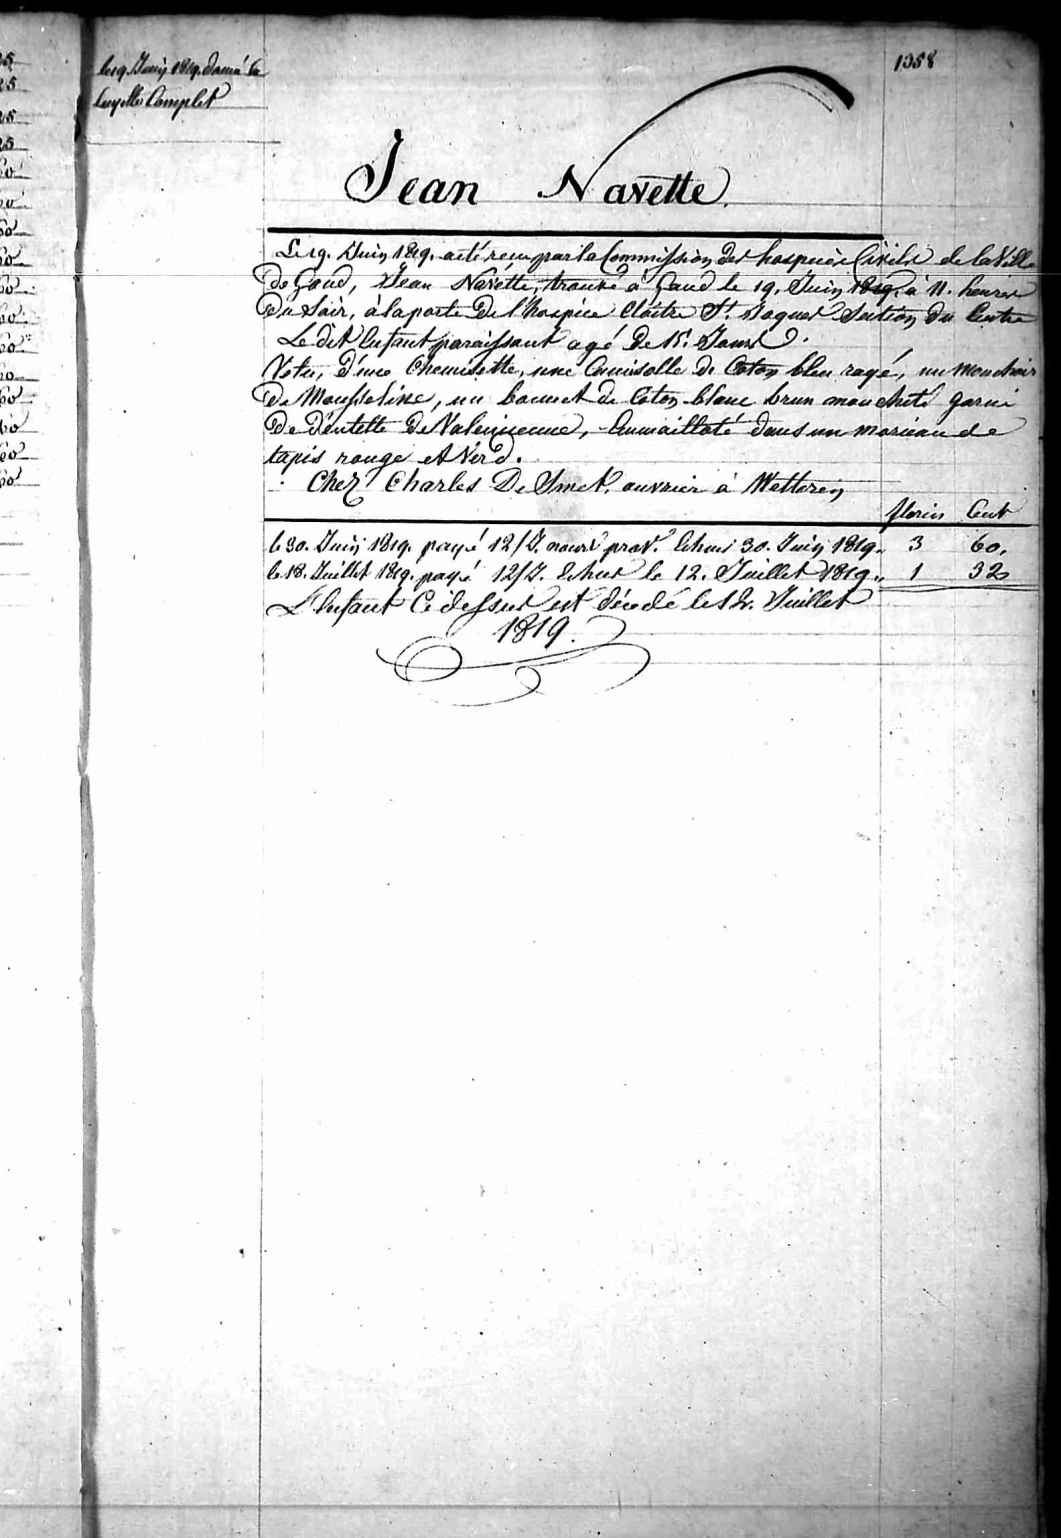 1358
le 19. Juin 1819. donné la
layette Complet
Jean Navette.
Le 19. Juin 1819. a été recu par la Commission des hospices Civils de la Ville
de Gand, Jean Navette, trouvé à Gand le 19. Juin 1819. à 11. heures
du Soir, à la porte de l'hospice Cloître St. Jaques Section du Centre
Le dit Enfant paraissant agé de 15. Jours.
Vetu, d'une Chemisette, une Camisolle de Coton bleu rayé, un mouchoir
de Mousseline, un bonnet de Coton blanc brun moucheté garni
de dentelle de Valencienne, Enmailloté dans un morceau de
tapis rouge et Verd.
Chez Charles De Smet, ouvrier à Wetteren
florin Cent
le 30. Juin 1819. payé 12/J. nourt prov. Echus 30. Juin 1819. 3 60.
le 18. Juillet 1819. payé 12/J. Echus le 12. Juillet 1819. 1 32
L'Enfant Ci dessus est décédé le 12. Juillet
1819.